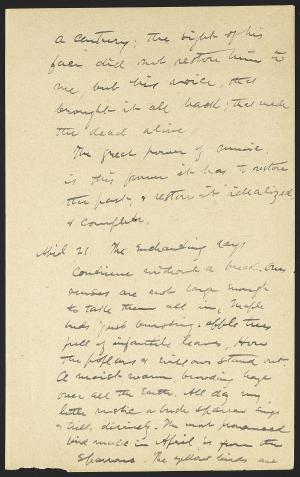 a century; the sight of his
face did not restore him to
me, but his voice, that
brought it all back; that made
the dead alive.
The great power of music
is this power it has to restore
the past, & restore it idealized
& complete.
April 21. The enchanting days
continue without a break. One's
senses are not large enough
to take them all in. Maple
buds just bursting, apple trees
full of infantile leaves. How
the poplars & willows stand out.
A moist warm, brooding haze
over all the Earth. All day my
little rustic or bush sparrow sings
& trills, divinely. The most
bird music in April is from the
sparrows. The yellow birds are